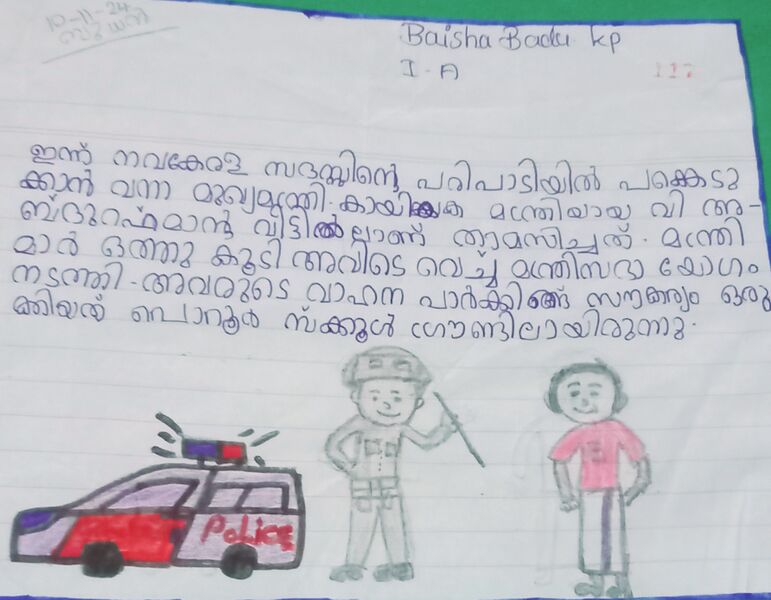 10-11-24
ബുധൻ
Baisha Badu kp
I-A
117
ഇന്ന് നവകേരള സദസ്സിന്റെ പരിപാടിയിൽ പങ്കെടു
ക്കാൻ വന്ന മുഖ്യമന്ത്രി. കായിക മന്ത്രിയായ വി അ-
ബ്ദുറഹ്മാൻ വീട്ടിൽലാണ് താമസിച്ചത്. മന്ത്രി
മാർ ഒത്തു കൂടി അവിടെ വെച്ച് മന്ത്രിസഭാ യോഗം
നടത്തി. അവരുടെ വാഹന പാർക്കിങ്ങ് സൗകര്യം ഒരു
ക്കിയത് പൊറൂർ സ്ക്കൂൾ ഗ്രൗണ്ടിലായിരുന്നു.
Police